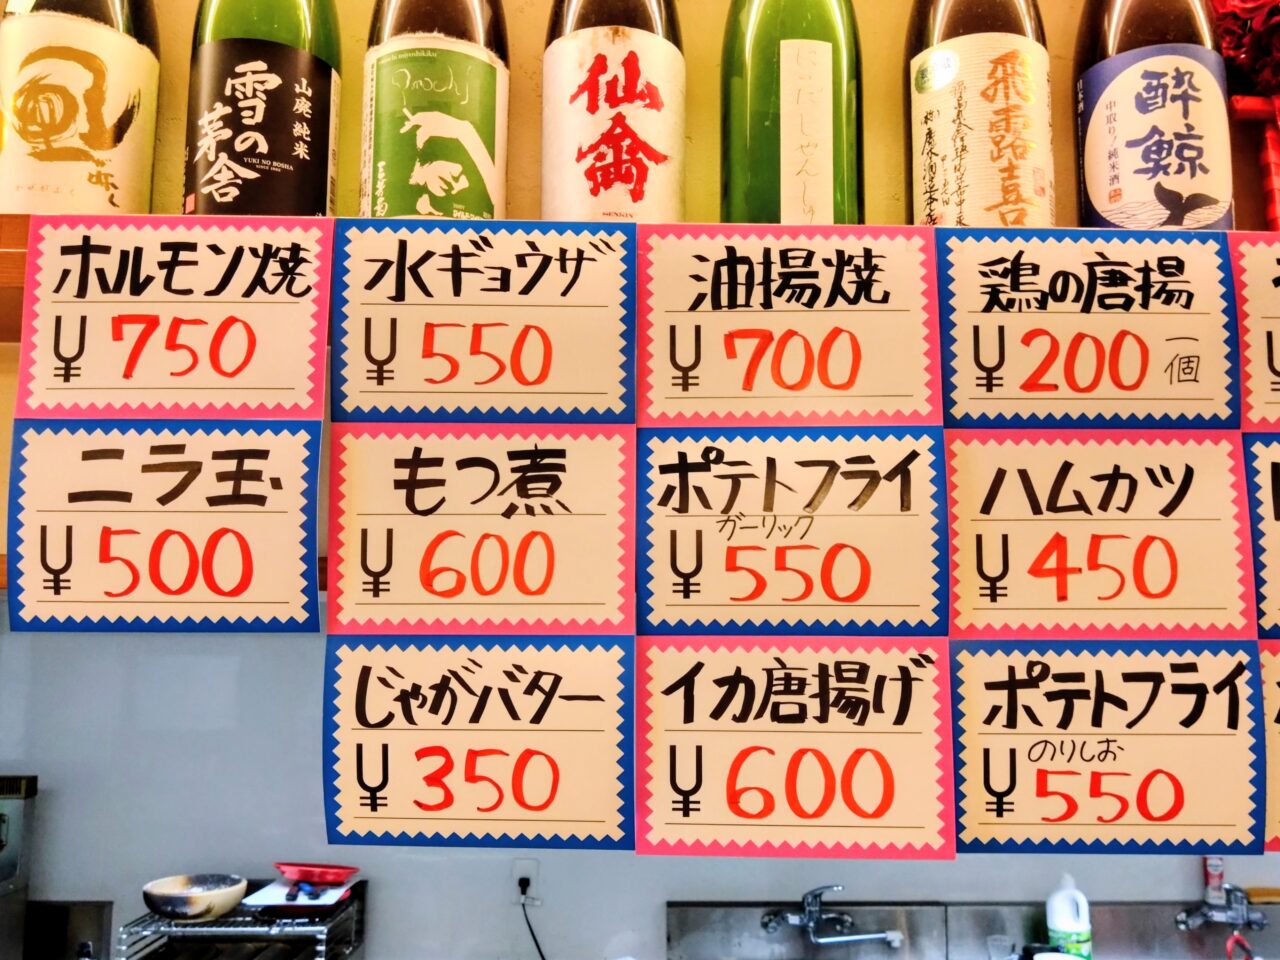 山廃純米
雪の茅舎
YUKI NO BOSHA
仙禽
SENKIN
にったしゃんしゅ
飛露喜
日本酒
酔鯨
中取り!純米酒
ホルモン焼
¥750
水ギョウザ
¥550
油揚焼
¥700
鶏の唐揚
¥200 一個
ニラ玉
¥500
もつ煮
¥600
ポテトフライ
ガーリック
¥550
ハムカツ
¥450
じゃがバター
¥350
イカ唐揚げ
¥600
ポテトフライ
のりしお
¥550